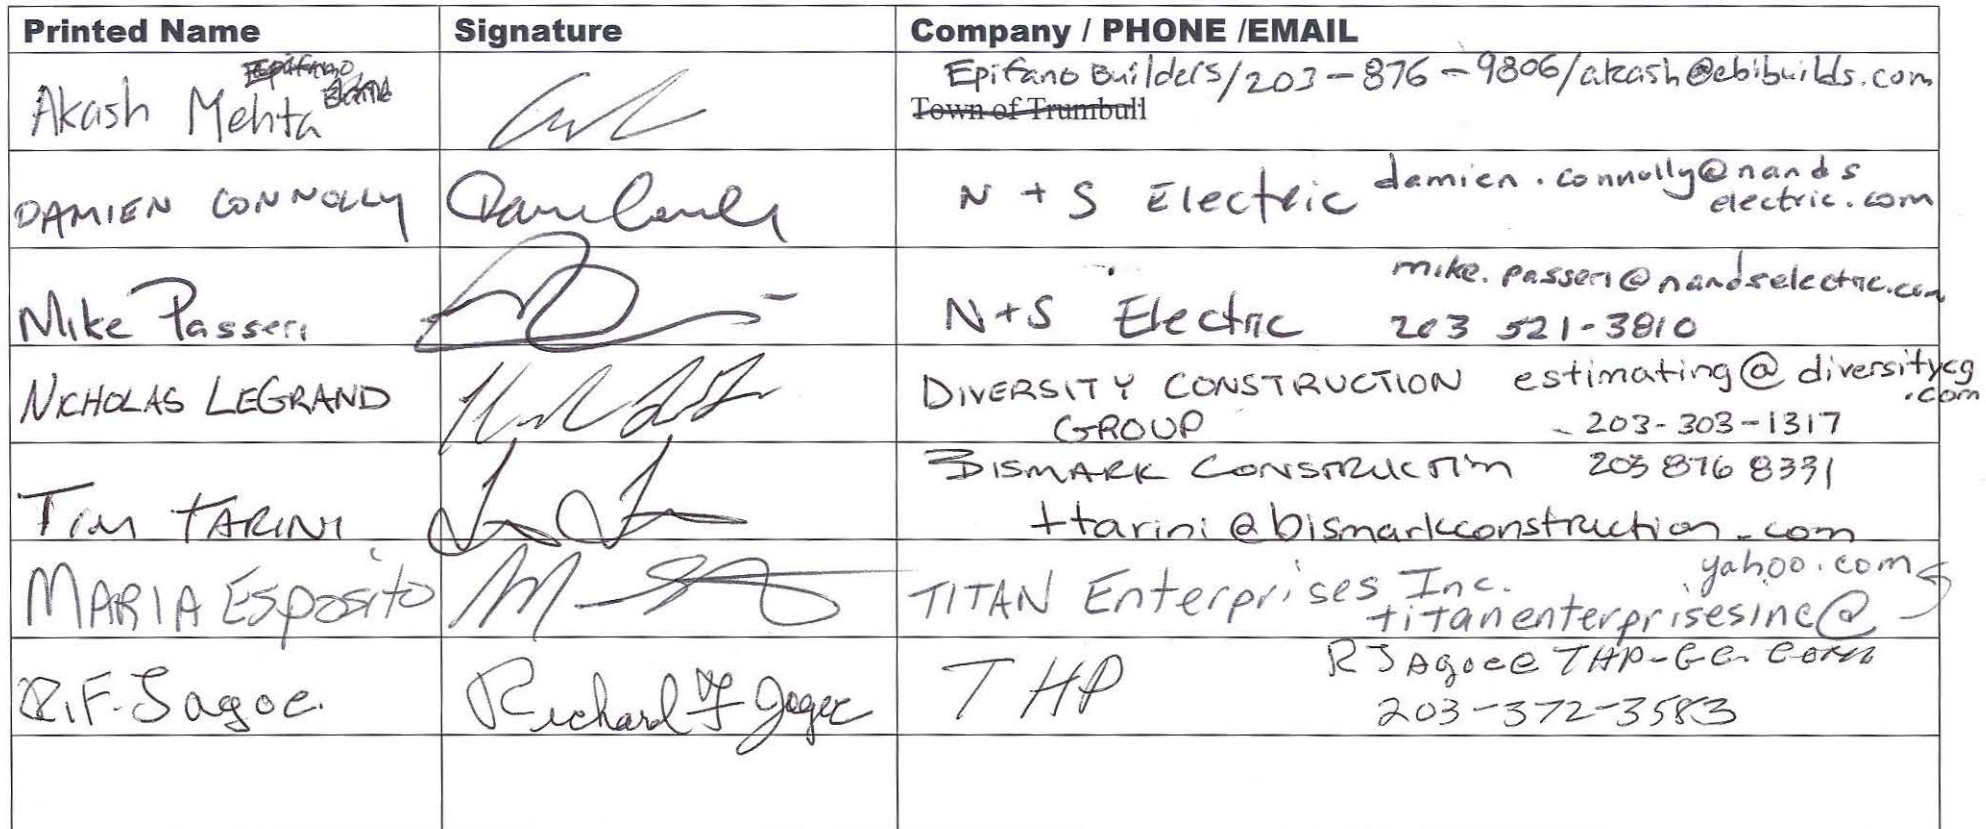 Printed Name Signature Company / PHONE /EMAIL
Epifano
Akash Mehta
Epifano Builders/203-876-9806/akash@ebibuilds.com
Town of Trumbull
DAMIEN CONNOLLY
N + S Electric damien.connolly@nands
electric.com
Mike Passeri
N+S Electric mike.passeri@nandselectric.com
203 521-3810
NICHOLAS LEGRAND
DIVERSITY CONSTRUCTION estimating@diversitycg
.com
GROUP 203-303-1317
Tim TARINI
BISMARK CONSTRUCTION 203 876 8331
ttarini@bismarkconstruction.com
MARIA Esposito
TITAN Enterprises Inc. yahoo.com
titanenterprisesinc@
R.F. Jagoe.
Richard F Jagoe
THP RJagoe@THP-GC.com
203-372-3583